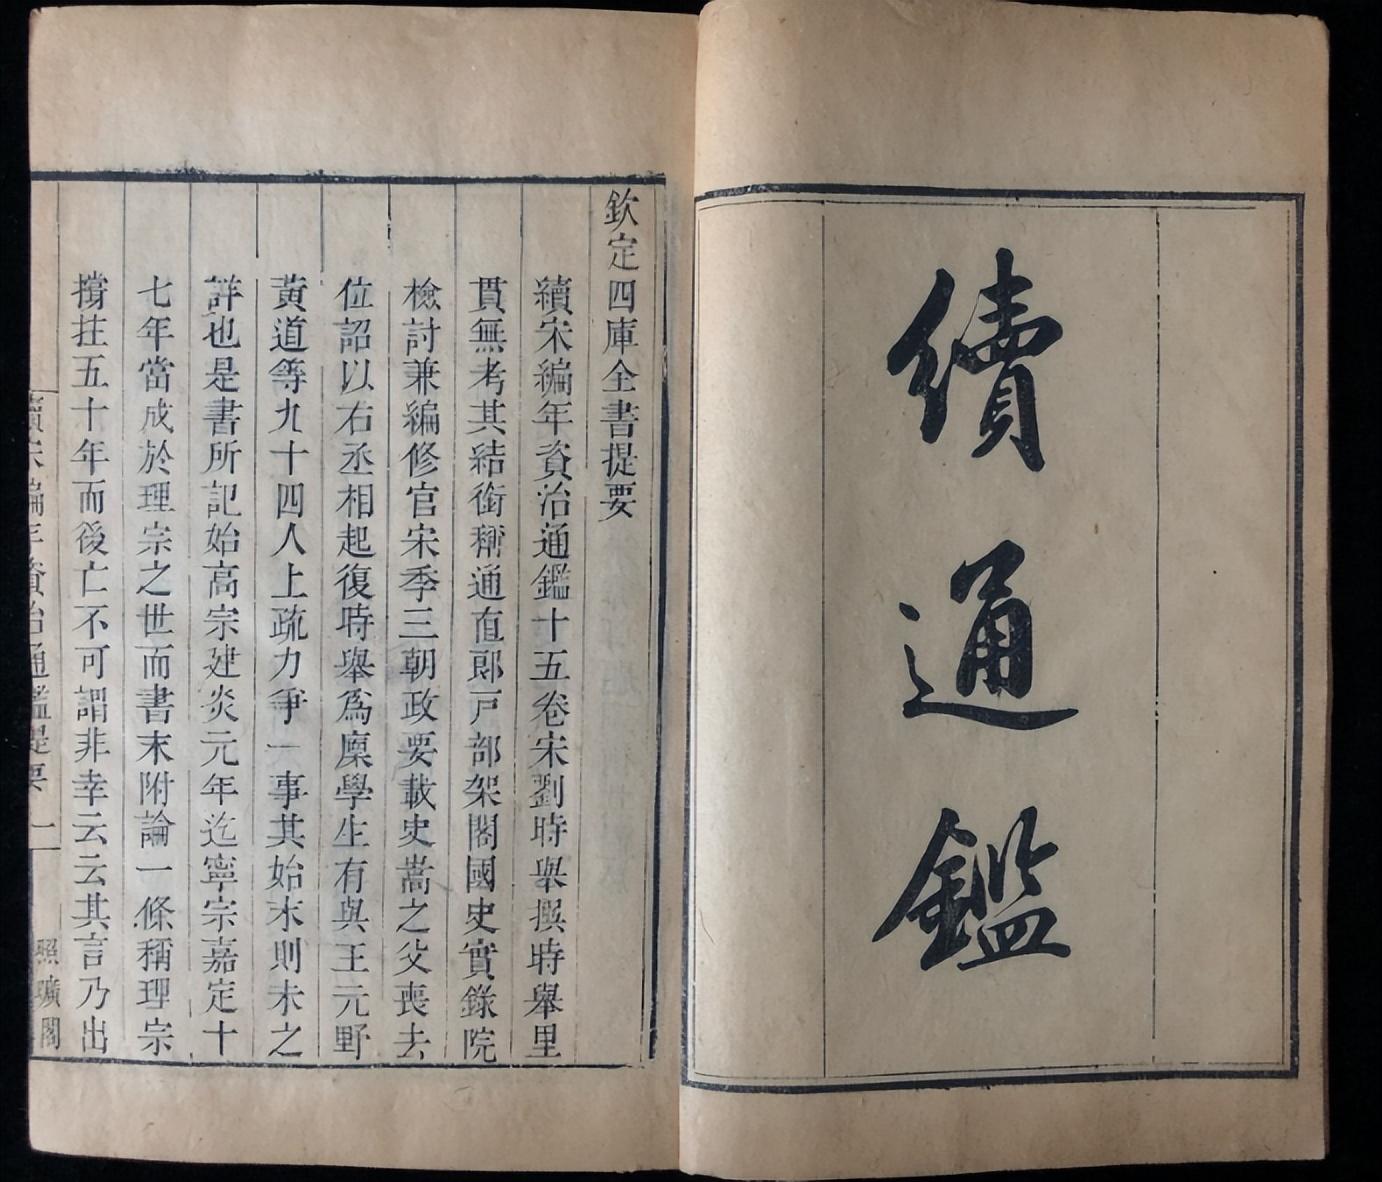 續通鑑
欽定四庫全書提要
續宋編年資治通鑑十五卷宋劉時舉撰時舉里
貫無考其結銜稱通直郎戸部架閣國史實錄院
檢討兼編修官宋季三朝政要載史嵩之父喪去
位詔以右丞相起復時舉爲廩學生有與王元野
黄道等九十四人上疏力爭一事其始末則未之
詳也是書所記始高宗建炎元年迄寧宗嘉定十
七年當成於理宗之世而書末附論一條稱理宗
撐拄五十年而後亡不可謂非幸云云其言乃出
續宋編年資治通鑑提要 一 照曠閣